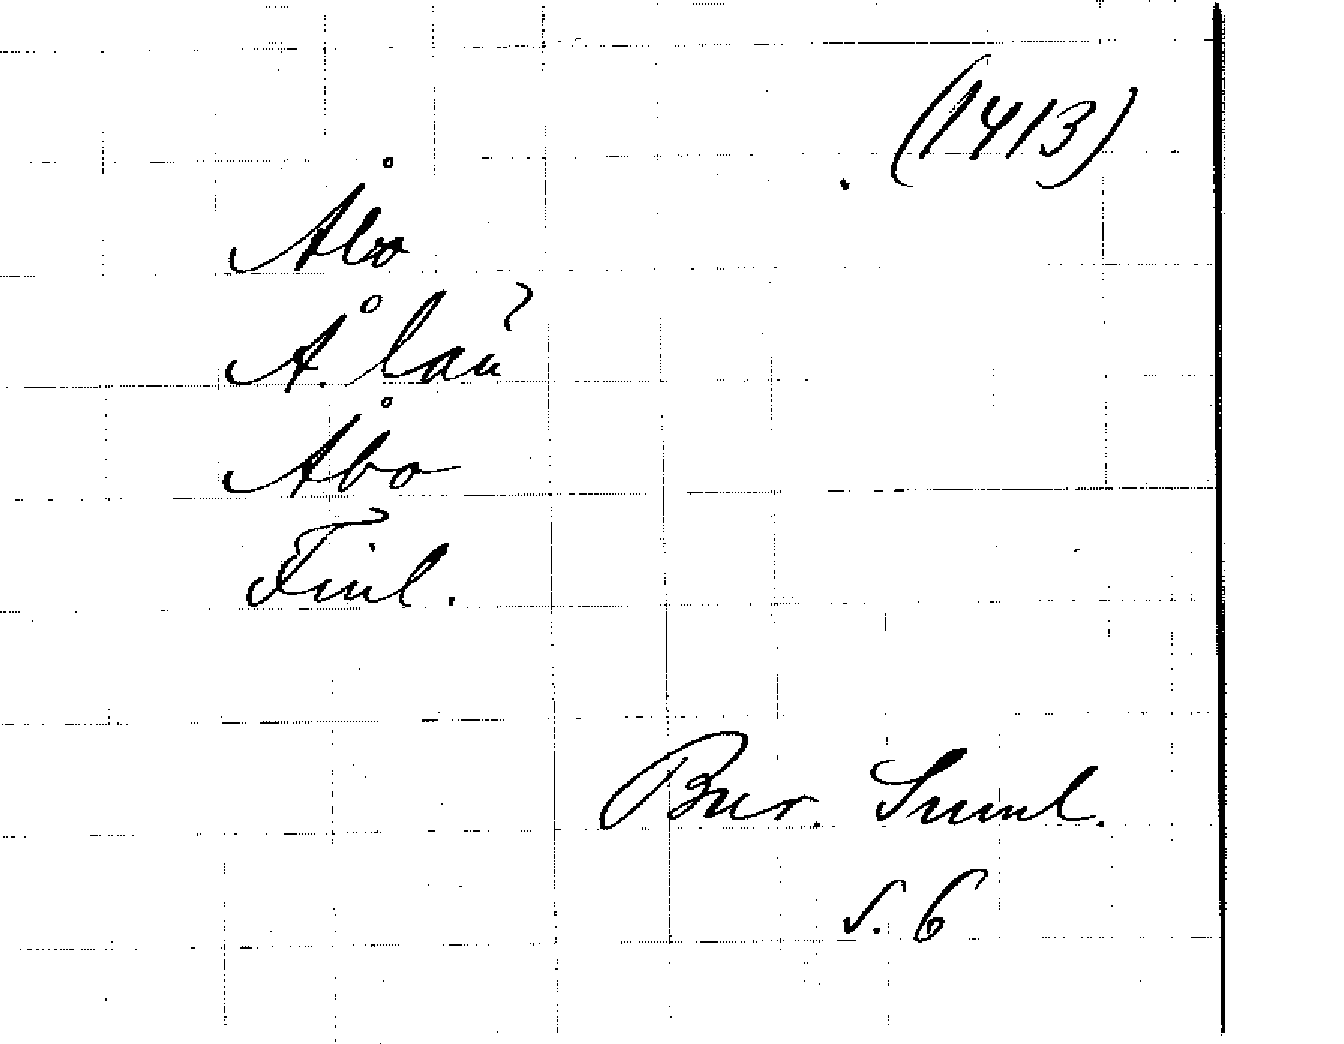 (1413)
Åbo
Å. län
Åbo
Finl.
Bur. Suml.
s. 6